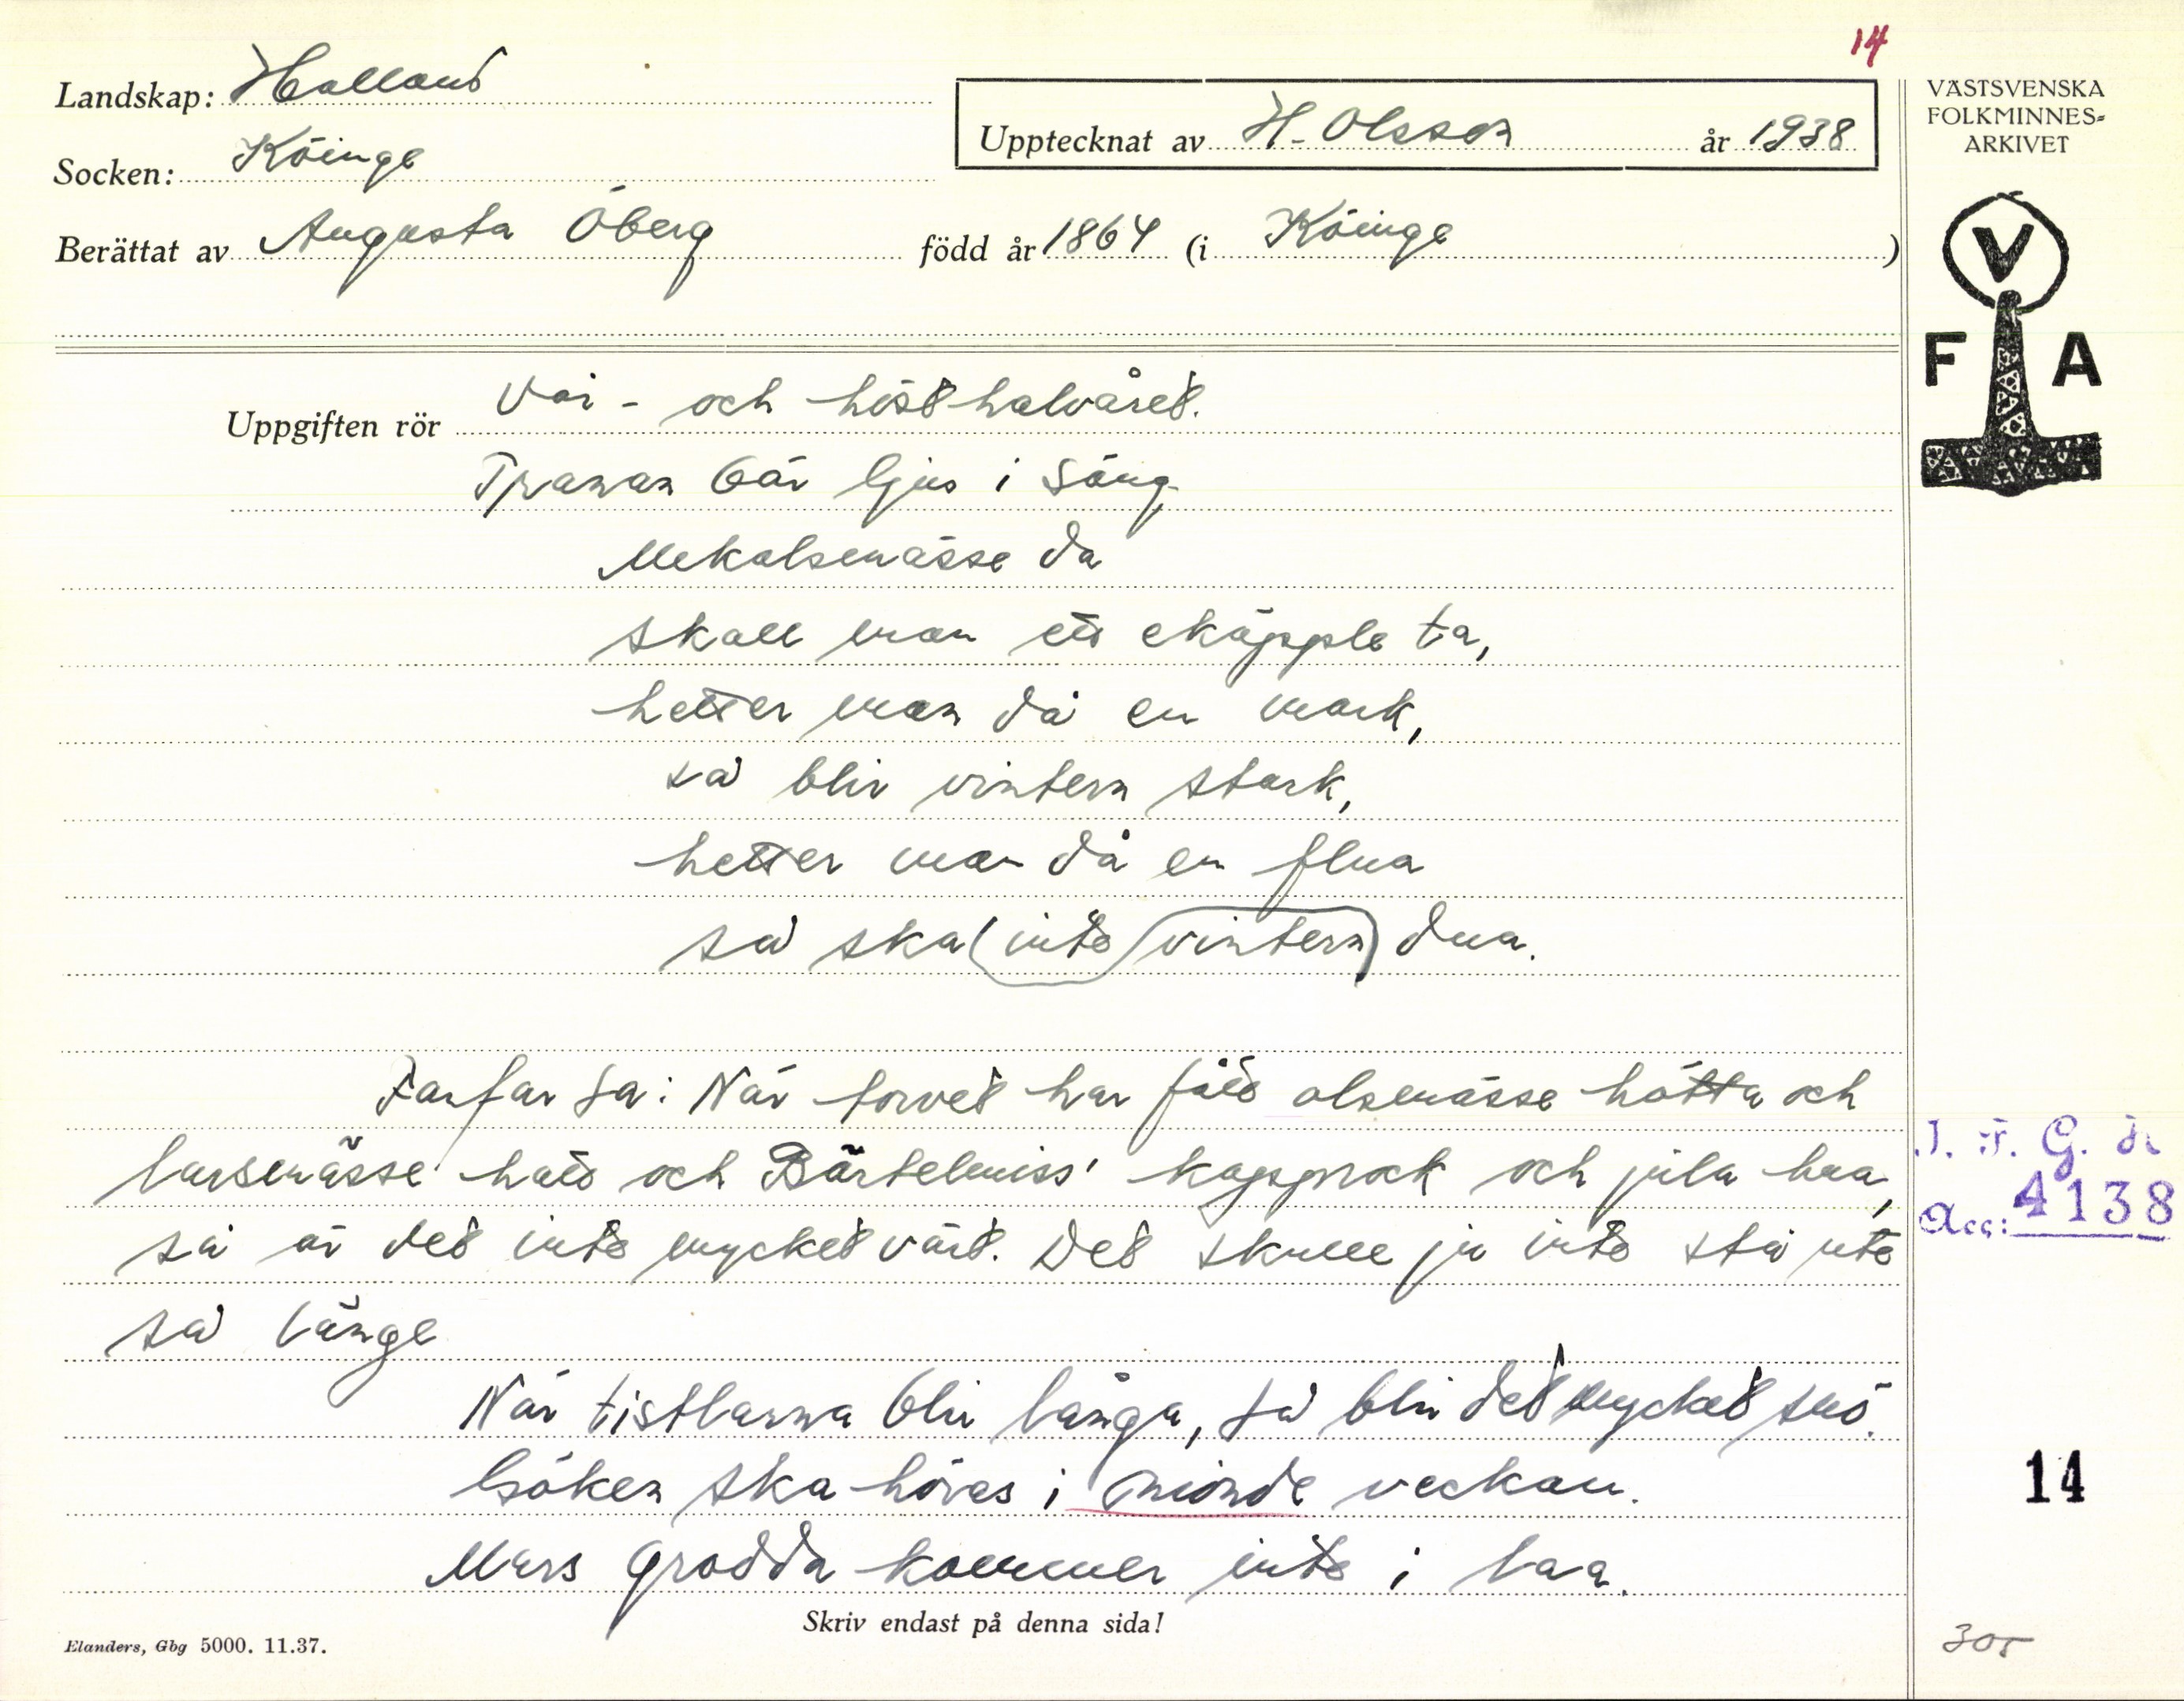 14
Landskap: Halland
Socken: Köinge
Berättat av Augusta Öberg född år 1864 (i Köinge)
Upptecknat av H. Olsson år 1938
VÄSTSVENSKA
FOLKMINNES-
ARKIVET
V
F A
Uppgiften rör Vår- och hösthalvåret.
Tranan bär ljus i säng.
Mekalsmässe da
skall man ett ekäpple ta,
hetter man då en mark,
så blir vintern stark,
hetter man då en flua
så ska (inte (vintern) dua.
Farfar sa: När torvet har fått olsmässe hötta och
larsmässe hatt och Bärtelmiss' kapprock och jula
så är det inte mycket värt. Det skulle ju inte stå ute
så länge
När tistlarna blir långa, så blir det mycket snö.
Göken ska höras i nionde veckan.
Mars grodda kommer inte i laa.
Skriv endast på denna sida!
Elanders, Gbg 5000. 11.37.
I. F. G. 
Acc: 4138
14
305